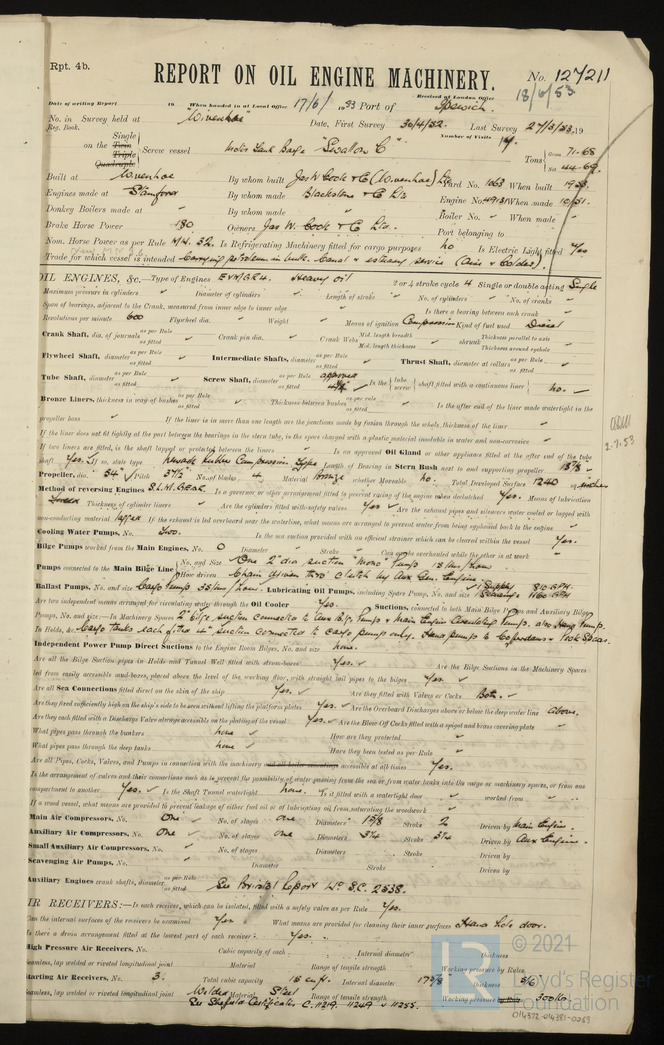 Rpt. 4b.
REPORT ON OIL ENGINE MACHINERY.
No. 127211
18/6/53
Date of writing Report 19 When handed in at Local Office 17/6/ 1953 Port of Ipswich. Received at London Office
No. in Survey held at Wivenhoe Date, First Survey 30/4/52. Last Survey 27/3/53. 19
Reg. Book. Number of Visits
Single
on the Twin
Triple
Quadruple
Screw vessel Motor Tank Barge "Swallow C" Tons Gross 71.68
Built at Wivenhoe By whom built Jas W. Cook & Co (Wivenhoe) Ltd Yard No. 1063 When built 1953.
Engines made at Stamford By whom made Blackstone & Co Ltd Engine No. When made 10/51.
Donkey Boilers made at By whom made Boiler No. When made
Brake Horse Power 180. Owners Jas W. Cook & Co Ltd. Port belonging to
Nom. Horse Power as per Rule Is Refrigerating Machinery fitted for cargo purposes no. Is Electric Light fitted Yes
Trade for which vessel is intended Carrying petroleum in bulk. Canal & estuary service (Aire & Calder).
OIL ENGINES, &c.—Type of Engines Heavy oil 2 or 4 stroke cycle 4 Single or double acting Single
Maximum pressure in cylinders Diameter of cylinders Length of stroke No. of cylinders No. of cranks
Span of bearings, adjacent to the Crank, measured from inner edge to inner edge Is there a bearing between each crank
Revolutions per minute 600 Flywheel dia. Weight Means of ignition Compression Kind of fuel used Diesel
Crank Shaft, dia. of journals as per Rule as fitted Crank pin dia. Crank Webs Mid. length breadth Mid. length thickness shrunk Thickness parallel to axis Thickness around eyehole
Flywheel Shaft, diameter as per Rule as fitted Intermediate Shafts, diameter as per Rule as fitted Thrust Shaft, diameter at collars as per Rule as fitted
Tube Shaft, diameter as per Rule as fitted Screw Shaft, diameter as per Rule approved as fitted Is the tube screw shaft fitted with a continuous liner no.
Bronze Liners, thickness in way of bushes as per Rule as fitted Thickness between bushes as per rule as fitted Is the after end of the liner made watertight in the
propeller boss If the liner is in more than one length are the junctions made by fusion through the whole thickness of the liner
If the liner does not fit tightly at the part between the bearings in the stern tube, is the space charged with a plastic material insoluble in water and non-corrosive
If two liners are fitted, is the shaft lapped or protected between the liners Is an approved Oil Gland or other appliance fitted at the after end of the tube
shaft Yes. If so, state type Length of Bearing in Stern Bush next to and supporting propeller 18⅞"
Propeller, dia. 34" Pitch 37½" No. of blades 4 Material Bronze whether Moveable no. Total Developed Surface 1240 sq. inches
Method of reversing Engines S.L.M. Gear. Is a governor or other arrangement fitted to prevent racing of the engine when declutched Yes. Means of lubrication
Forced Thickness of cylinder liners Are the cylinders fitted with safety valves Yes Are the exhaust pipes and silencers water cooled or lagged with
non-conducting material lagged If the exhaust is led overboard near the waterline, what means are arranged to prevent water from being syphoned back to the engine
Cooling Water Pumps, No. Two. Is the sea suction provided with an efficient strainer which can be cleared within the vessel Yes.
Bilge Pumps worked from the Main Engines, No. 0 Diameter Stroke Can one be overhauled while the other is at work
Pumps connected to the Main Bilge Line No. and Size One 2" dia suction "Mono" Pump 18 tons/hour
How driven Chain driven thro' clutch by Aux Gen. Engine.
Ballast Pumps, No. and size Lubricating Oil Pumps, including Spare Pump, No. and size 1 Supply 810 GPH. 1 Scavenge 1160 GPH
Are two independent means arranged for circulating water through the Oil Cooler Yes. Suctions, connected to both Main Bilge Pumps and Auxiliary Bilge
Pumps, No. and size:—In Machinery Spaces 2" Bilge suction connected to Aux Bilge Pump & Main Engine Circulating Pump. also Hand Pump.
In Holds, &c. Cargo tanks each fitted 4" suction connected to cargo pumps only. Hand pumps to Cofferdams & Peak Spaces.
Independent Power Pump Direct Suctions to the Engine Room Bilges, No. and size none.
Are all the Bilge Suction pipes in Holds and Tunnel Well fitted with strum-boxes Yes. Are the Bilge Suctions in the Machinery Spaces
led from easily accessible mud-boxes, placed above the level of the working floor, with straight tail pipes to the bilges Yes.
Are all Sea Connections fitted direct on the skin of the ship Yes. Are they fitted with Valves or Cocks Both.
Are they fixed sufficiently high on the ship's side to be seen without lifting the platform plates Yes. Are the Overboard Discharges above or below the deep water line above.
Are they each fitted with a Discharge Valve always accessible on the plating of the vessel Yes. Are the Blow Off Cocks fitted with a spigot and brass covering plate
What pipes pass through the bunkers none How are they protected
What pipes pass through the deep tanks none Have they been tested as per Rule
Are all Pipes, Cocks, Valves, and Pumps in connection with the machinery and all boiler mountings accessible at all times Yes.
Is the arrangement of valves and their connections such as to prevent the possibility of water passing from the sea or from water tanks into the cargo or machinery spaces, or from one
compartment to another Yes. Is the Shaft Tunnel watertight none. Is it fitted with a watertight door worked from
If a wood vessel, what means are provided to prevent leakage of either fuel oil or of lubricating oil from saturating the woodwork
Main Air Compressors, No. One No. of stages one Diameters 1⅝ Stroke 2 Driven by Main Engine.
Auxiliary Air Compressors, No. One No. of stages one Diameters 3¼ Stroke 3¼ Driven by Aux Engine.
Small Auxiliary Air Compressors, No. No. of stages Diameters Stroke Driven by
Scavenging Air Pumps, No. Diameter Stroke Driven by
Auxiliary Engines crank shafts, diameter as per Rule as fitted See Bristol Report No S.C. 2538.
AIR RECEIVERS:—Is each receiver, which can be isolated, fitted with a safety valve as per Rule Yes.
Can the internal surfaces of the receivers be examined Yes What means are provided for cleaning their inner surfaces Hand hole door.
Is there a drain arrangement fitted at the lowest part of each receiver Yes.
High Pressure Air Receivers, No. Cubic capacity of each Internal diameter thickness
Seamless, lap welded or riveted longitudinal joint Material Range of tensile strength Working pressure by Rules
Starting Air Receivers, No. 3. Total cubic capacity Internal diameter thickness
Seamless, lap welded or riveted longitudinal joint Welded Material Steel Range of tensile strength Working pressure
See Sheffield Certificates C. 11219. 11249 & 11255.
2.7.53
© 2021
Lloyd's Register
Foundation
014372-014381-0059